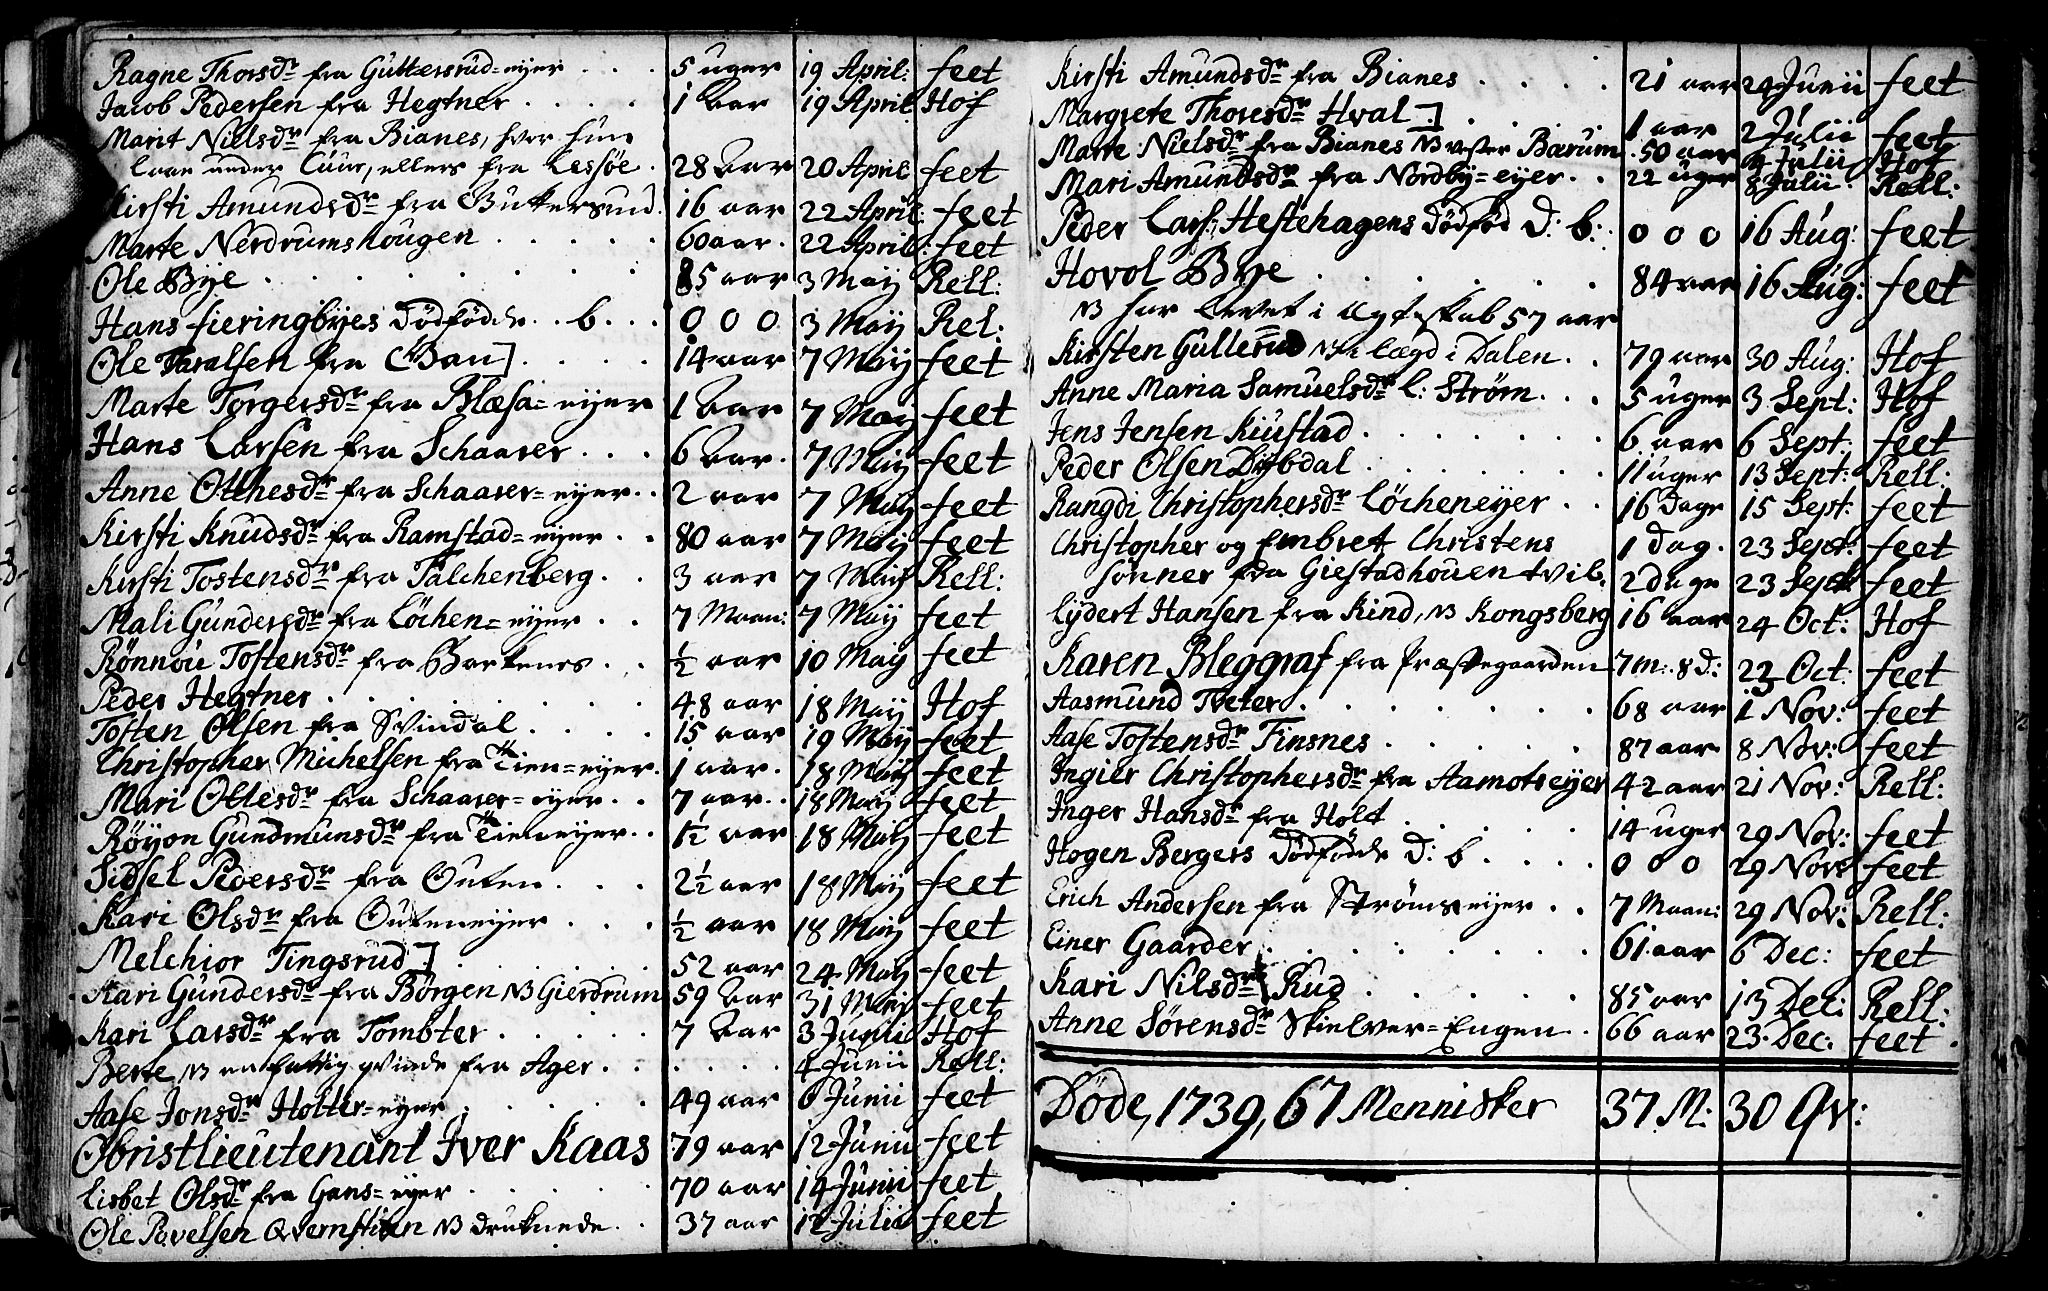 Ragne Thorsdr fra Guttersrud=eyer . . . 5 uger 19 April: feet
Jacob Pedersen fra Hegtner . . . . 1 Aar 19 April Hof
Marit Nielsdr fra Bianes, hvor hun
laae under Cuur, ellers fra Lessøe . 28 Aar 20 April feet
Kirsti Amundsdr fra Bukkersrud . 16 aar 22 April: feet
Marte Nerdrumshougen . . . . . 60 aar . 22 April : feet
Ole Bye . . . . . . . 85 aar 3 May Rell:
Hans fieringbyes Dødfødde . . b . . . 0 0 0 3 May Rel:
Ole Taralsen fra Gan] . . . . 14 aar 7 May feet
Marte Torgersdr fra Blæsa=eyer 1 Aar 7 May feet
Hans Larsen fra Schaarer . . . 6 Aar . 7 May feet
Anne Othesdr fra Schaarer=eyer . . 2 aar 7 May feet
Kirsti Knudsdr fra Ramstad=eyer . . 80 aar 7 May feet
Kirsti Tostensdr fra Falchenberg . . 3 aar 7 May Rell:
Mali Gundersdr fra Løchen=eyer . . 7 Maan: 7 May feet
Rønnou Tostensdr fra Barkenes . . ½ aar 10 May feet
Peder Hegtner . . . . . . 48 aar 18 May Hof
Tosten Olsen fra Svindal . . . . 15 aar 19 May feet
Christopher Michelsen fra Tien=eyer . 1 aar . 18 May feet
Mari Ottesdr fra Schaarer=eyer . . 7 aar . . 18 May feet
Røyon Gundmunsdr fra Tieneeyer . . 1½ aar 18 May feet
Sidsel Pedersdr fra Outen . . . 2½ aar 18 May feet
Kari Olsdr fra Outeneyer . . . ½ aar 18 May feet
Melchior Tingsrud] . . . . . 52 aar 24 May feet
Kari Gundersdr fra Børgen NB Gierdrum 59 Aar 31 May feet
Kari Larsdr fra Tombter . . . . . 7 Aar 3 Junii Hof
Berte NB en fattig qvinde fra Ager . . . . . . 4 Junii Rell:
Aase Jonsdr Holter=eyer . . . . . 49 aar 6 Junii feet
Obristlieutenant Iver Kaas 79 aar 12 Junii feet
Lisbet Olsdr fra Gans=eyer . . . . . 70 aar 14 Junii feet
Ole Povelsen Qvernstien NB druknede . . 37 aar 12 Julii feet
Kirsti Amundsdr fra Bianes . . . . 21 aar 29 Junii feet
Margrete Thoresdr Hval] . . . . . 1 aar 2 Julii feet
Marte Nielsdr fra Bianes NB vester Bærum . 50 aar 4 Julii Hof
Mari Amundsdr fra Nordby=eyer . . 22 uger 8 Julii . Rell:
Peder Lars: Hestehagens Dødfød D: b: . 0 0 0 16 Aug: feet
Hovol Bye . . . . . 84 aar 16 Aug: feet
NB har levet i Ægteskab 57 aar
Kirsten Gullerud NB i lægd i Dalen . . 79 aar 30 Aug: Hof
Anne Maria Samuelsdr l: Strøm . . . 5 uger 3 Sept: Hof
Jens Jensen Kiustad . . . . . . 6 aar 6 Sept: feet
Peder Olsen Dybdal . . . . . . 11 uger 13 Sept: Rell:
Rangdi Christophersdr Løcheneyer . . 16 Dage 15 Sept: feet
Christopher og Embret Christens 1 dag . 23 Sept: feet
sønner fra Giestadhouen tvil. 2 dage 23 Sept feet
Lydert Hansen fra Kind, NB Kongsberg 16 aar 24 Oct: Hof
Karen Bleggraf fra Præstegaarden 7 m: 8 d: 22 Oct: feet
Aasmund Tveter . . . . . . . 68 aar 1 Nov: feet
Aase Tostensdr Finsnes . . . . . 87 aar 8 Nov: feet
Ingier Christophersdr fra Aamotseyer 42 aar 21 Nov: Rell:
Inger Hansdr fra Holt . . . . . 14 uger 29 Nov: feet
Hogen Bergers Dødfødde D: b . . . . 0 0 0 29 Nov: feet
Erich Andersen fra Strømseyer . . 7 Maan: 29 Nov: Rell:
Einer Gaarder . . . . . . . 61 aar 6 Dec: feet
Kari Nilsdr Rud . . . . . 85 aar 13 Dec: Rell:
Anne Sørensdr Skielver=Engen . 66 aar 23 Dec: feet .
Døde, 1739, 67 Mennisker 37 M: 30 Qv: